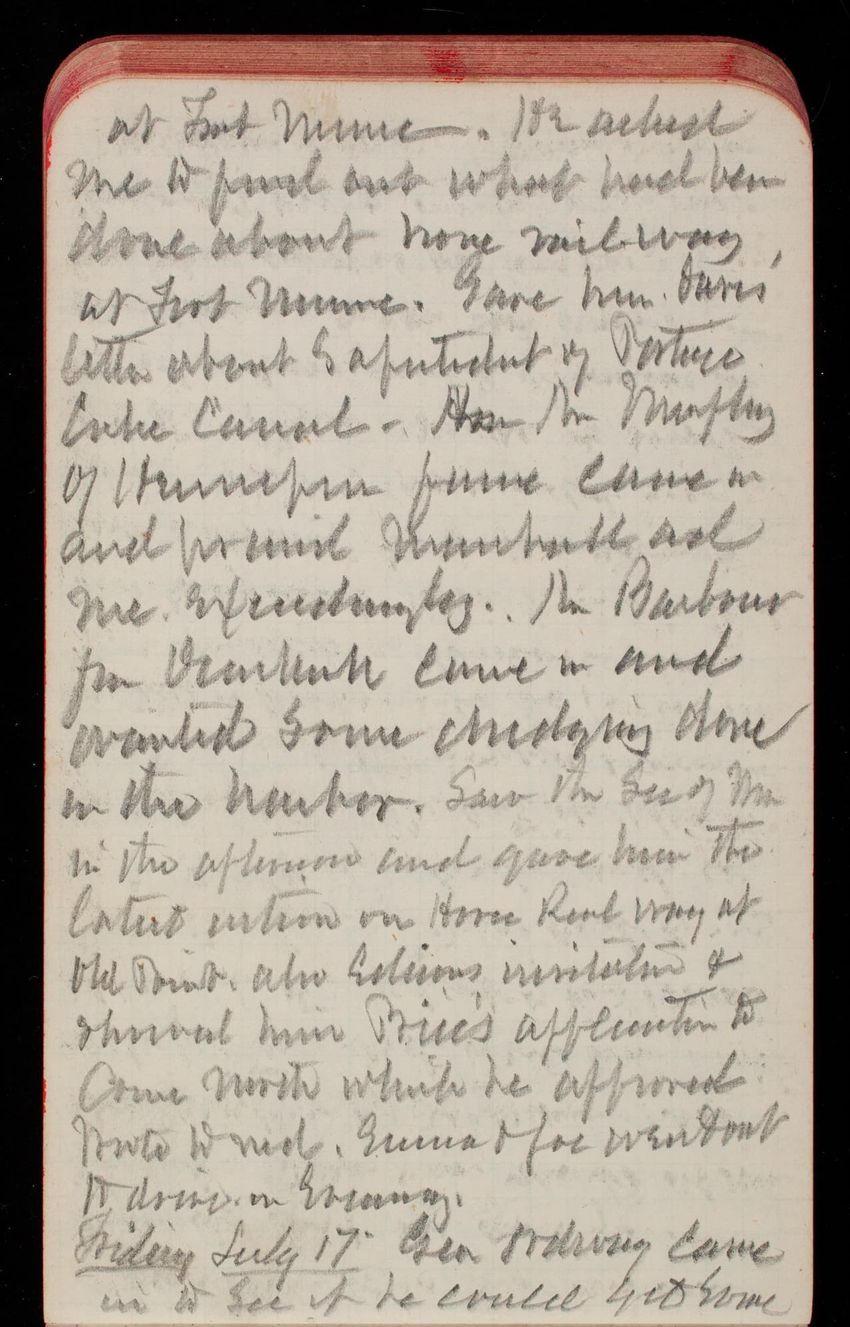 at Fort Monroe. He asked
me to find out what had been
done about horse railway,
at Fort Monroe. Gave him Davis'
letter about Supertendt of Portage
Lake Canal. Mr Murphy
of Hennepin fame came in
and praised Marshall and
me exceedingly. Mr Barbour
from Dunkirk came in and
wanted some dredging done
in the harbor. Saw the Sec of War
in the afternoon and gave him the
latest action on Horse Rail way at
Old Point. also Edisons invitation &
showed him Price's application to
come north which he approved
Wrote to . Emma & Joe went out
to drive in Evening.
Friday July 17 Gen Ordway came
in to see if he could get some